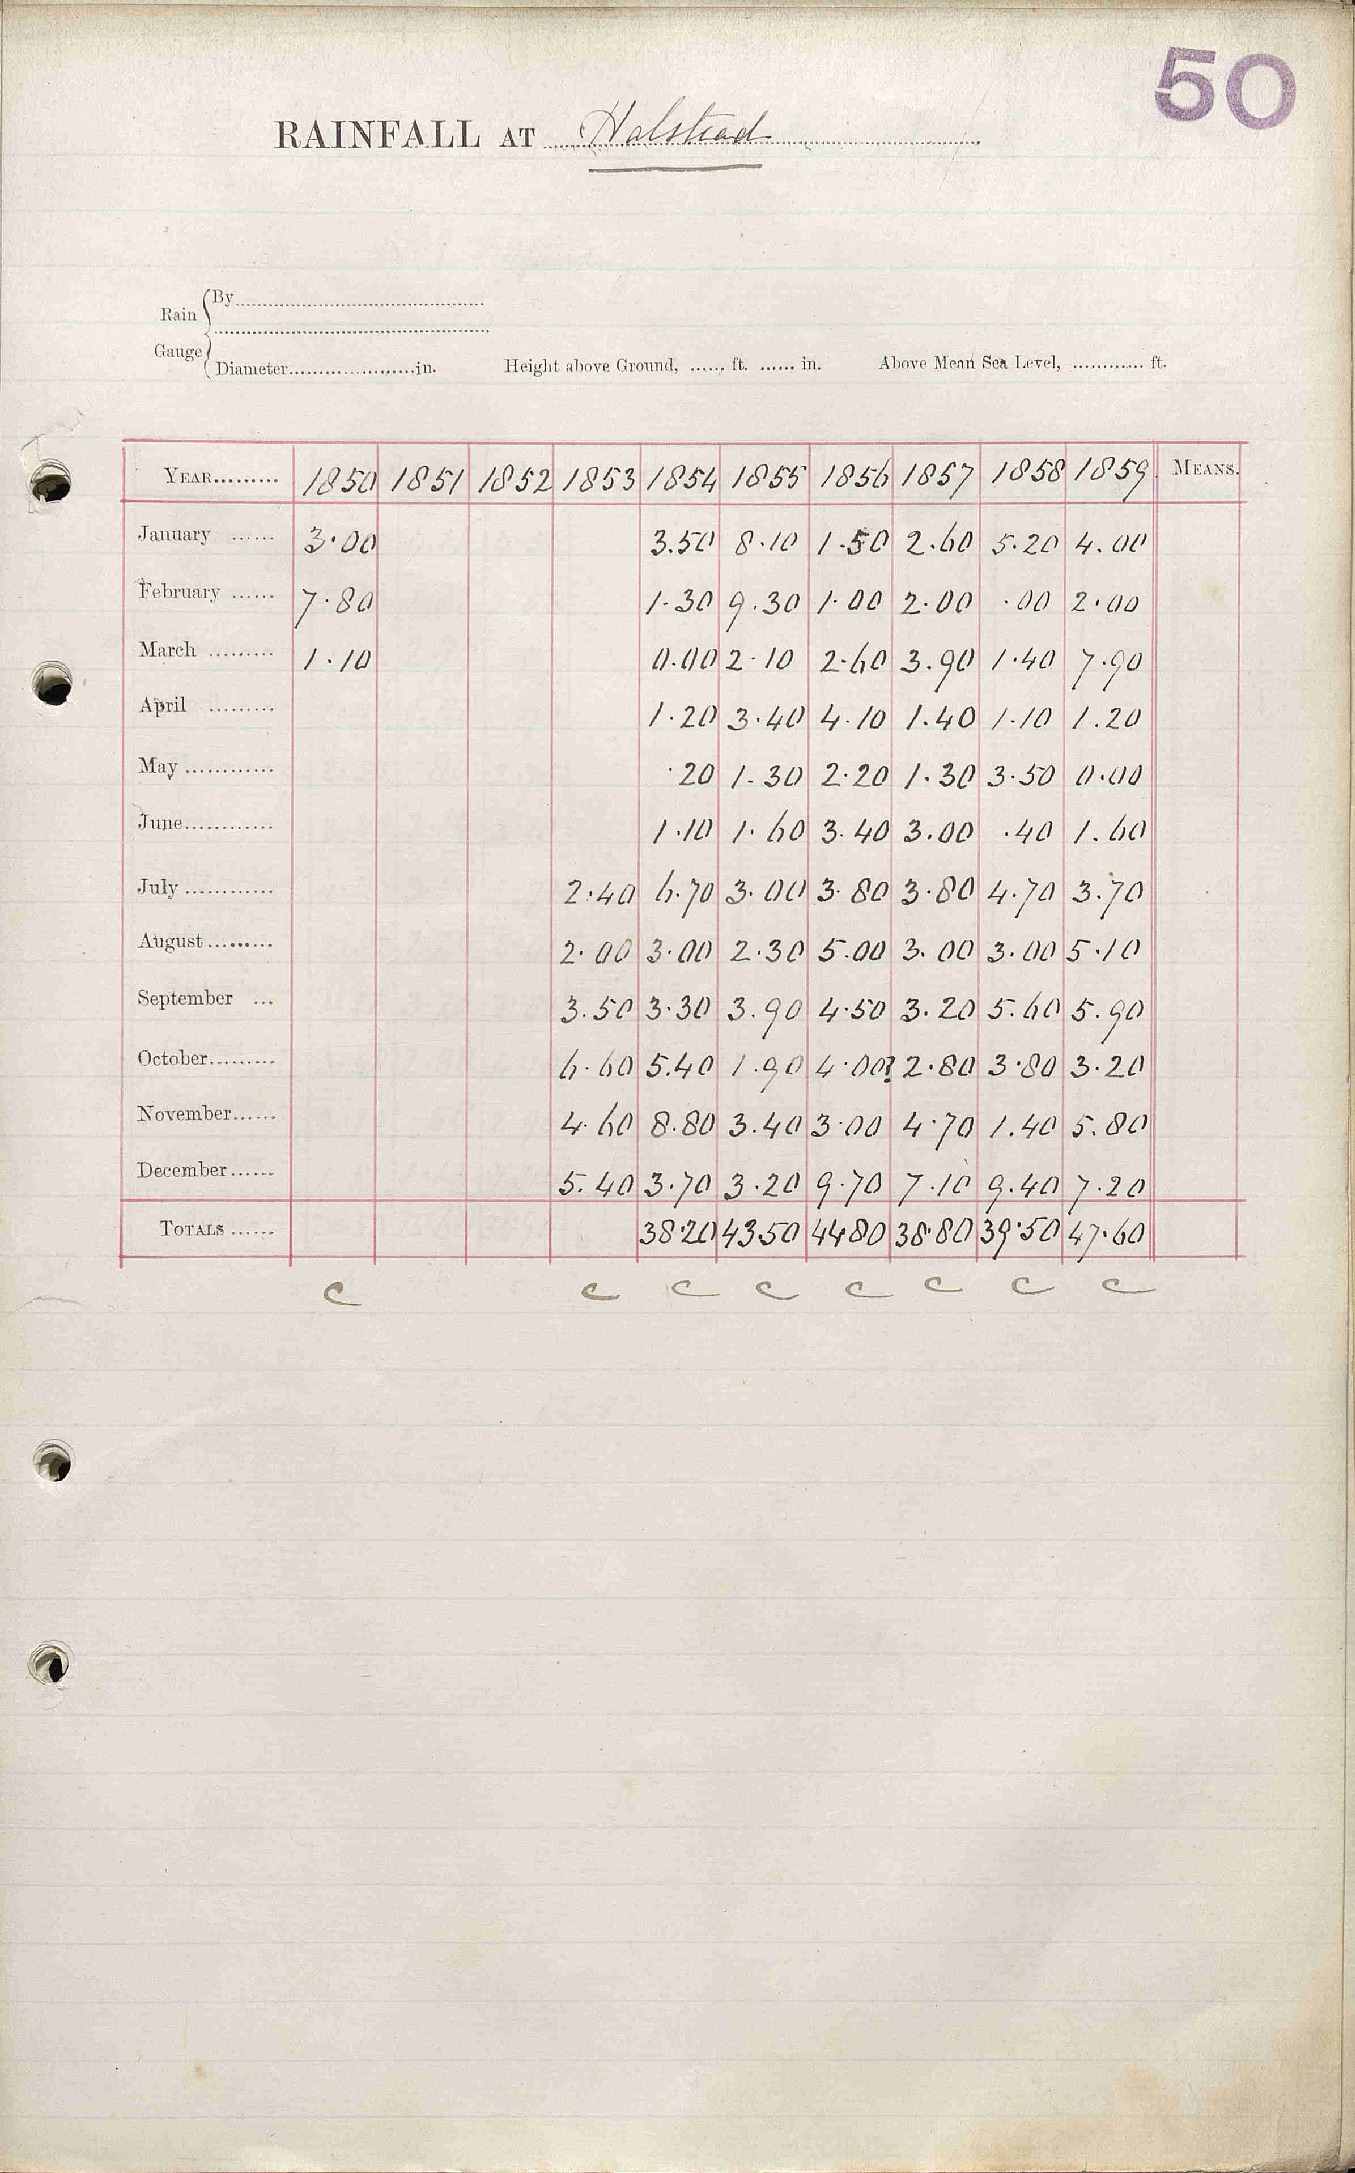 50
RAINFALL AT Halstead
Rain Gauge { By
Diameter in. Height above Ground, ft. in. Above Mean Sea Level, ft.
YEAR 1850 1851 1852 1853 1854 1855 1856 1857 1858 1859 MEANS.
January 3.00 3.50 8.10 1.50 2.60 5.20 4.00
February 7.80 1.30 9.30 1.00 2.00 .00 2.00
March 1.10 0.00 2.10 2.60 3.90 1.40 7.90
April 1.20 3.40 4.10 1.40 1.10 1.20
May .20 1.30 2.20 1.30 3.50 0.00
June 1.10 1.60 3.40 3.00 .40 1.60
July 2.40 6.70 3.00 3.80 3.80 4.70 3.70
August 2.00 3.00 2.30 5.00 3.00 3.00 5.10
September 3.50 3.30 3.90 4.50 3.20 5.60 5.90
October 6.60 5.40 1.90 4.00? 2.80 3.80 3.20
November 4.60 8.80 3.40 3.00 4.70 1.40 5.80
December 5.40 3.70 3.20 9.70 7.10 9.40 7.20
TOTALS 38.20 43.50 44.80 38.80 39.50 47.60
c c c c c c c c